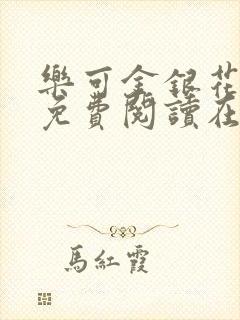 樂可金銀花
免費閱讀在
馬紅霞